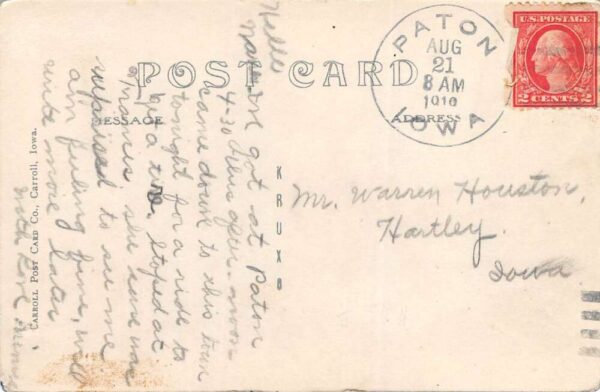 POST CARD
MESSAGE
ADDRESS
PATON
AUG
21
8 AM
1910
IOWA
U.S. POSTAGE
2 CENTS 2
KRUXO
CARROLL POST CARD CO., Carroll, Iowa.
Mr. Warren Houston,
Hartley.
Iowa
Hello
got at Paton
4-30 this after-noon
came down to this town
tonight for a ride to
get a stoped at
she sure was
surprised to see me
am feeling fine, will
write more later
with love